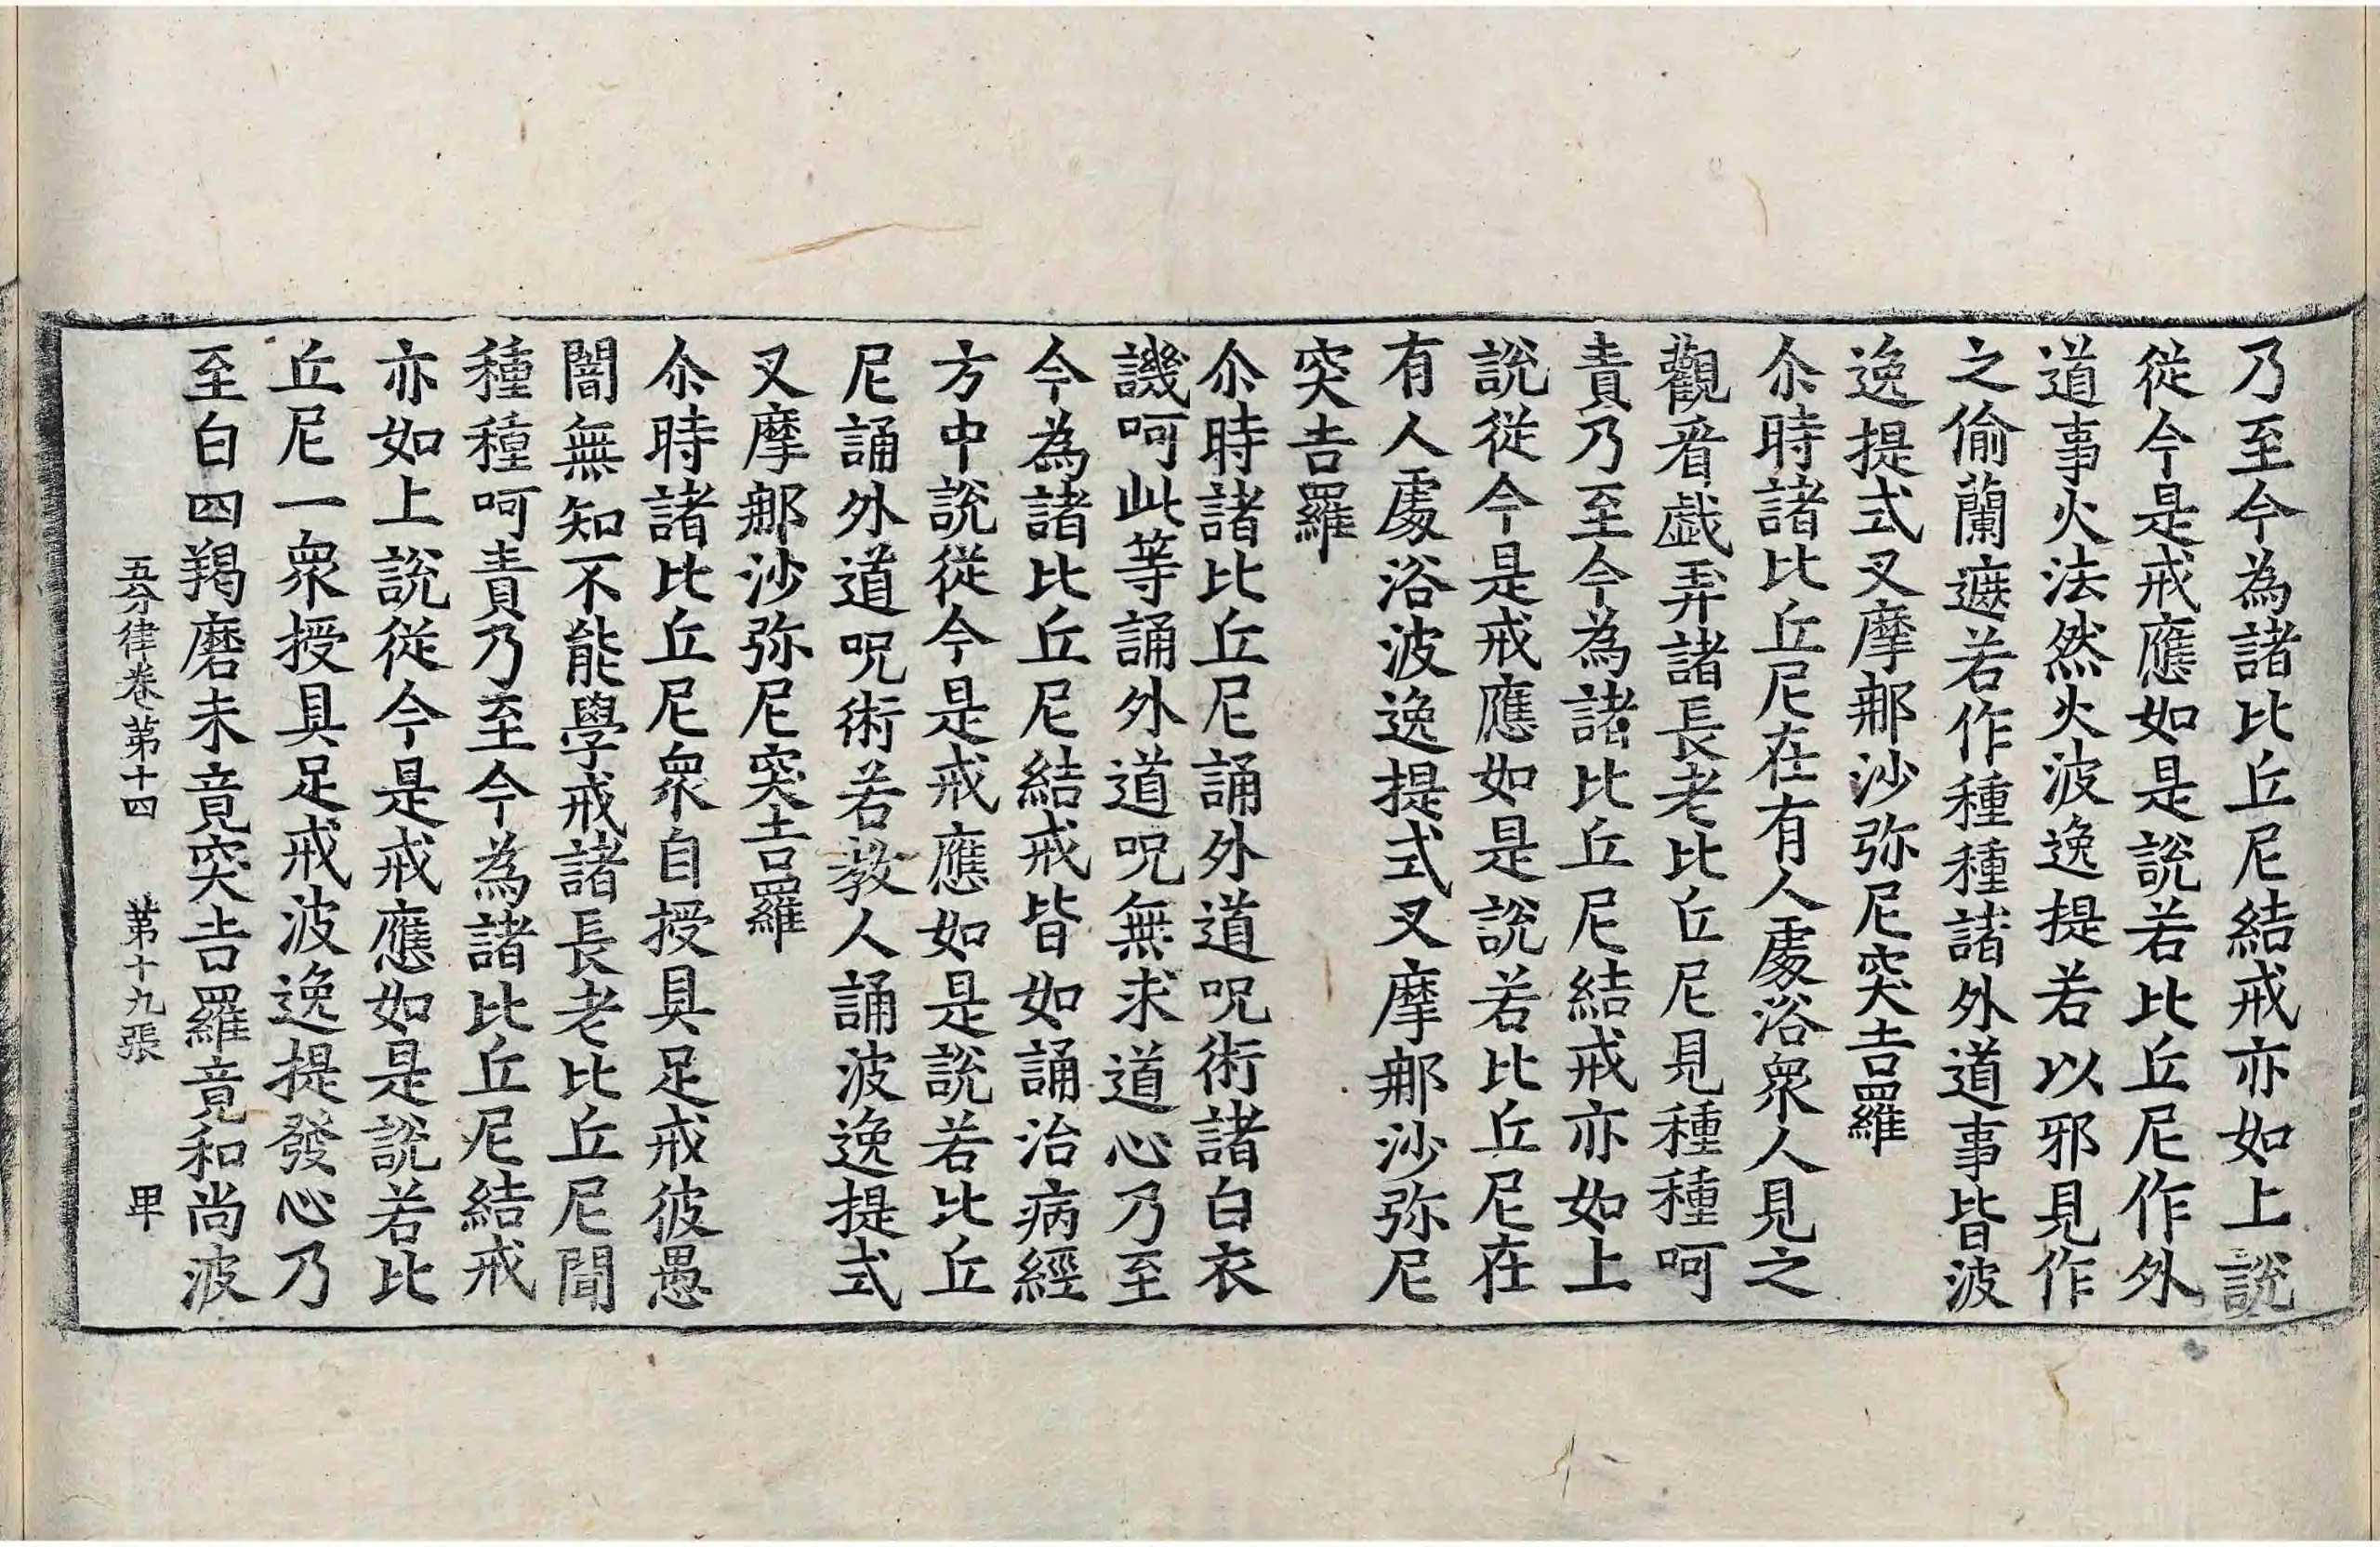 乃至今為諸比丘尼結戒亦如上說
從今是戒應如是說若比丘尼作外
道事火法然火波逸提若以邪見作
之偷蘭遮若作種種諸外道事皆波
逸提式叉摩那沙弥尼突吉羅
尒時諸比丘尼在有人處浴衆人見之
觀看戲弄諸長老比丘尼見種種呵
責乃至今為諸比丘尼結戒亦如上
說從今是戒應如是說若比丘尼在
有人處浴波逸提式叉摩那沙弥尼
突吉羅
尒時諸比丘尼誦外道呪術諸白衣
譏呵此等誦外道呪無求道心乃至
今為諸比丘尼結戒皆如誦治病經
方中說從今是戒應如是說若比丘
尼誦外道呪術若教人誦波逸提式
叉摩那沙弥尼突吉羅
尒時諸比丘尼衆自授具足戒彼愚
闇無知不能學戒諸長老比丘尼聞
種種呵責乃至今為諸比丘尼結戒
亦如上說從今是戒應如是說若比
丘尼一衆授具足戒波逸提發心乃
至白四羯磨未竟突吉羅竟和尚波
五分律卷第十四 第十九張 甲